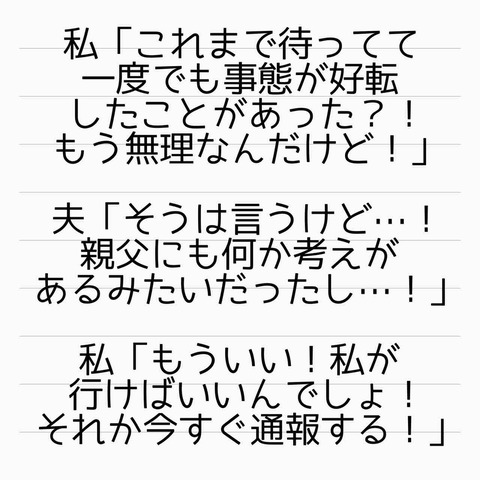 私「これまで待ってて
一度でも事態が好転
したことがあった？！
もう無理なんだけど！」
夫「そうは言うけど…！
親父にも何か考えが
あるみたいだったし…！」
私「もういい！私が
行けばいいんでしょ！
それか今すぐ通報する！」